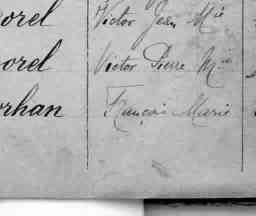 orel Victor Jean Mie
orel Victor Pierre Mie
orhan François Marie